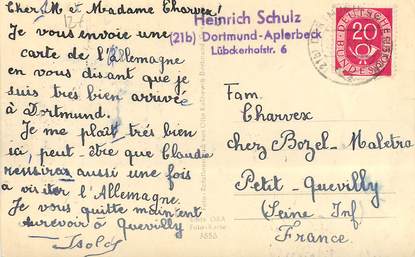 Cher M et Madame Charvex!
Je vous envoie une
carte de l'Allemagne
en vous disant que je
suis très bien arrivée
à Dortmund.
Je me plaît très bien
ici, peut-être que Claudie
ressiras aussi une fois
à visiter l'Allemagne.
Je vous quitte maintenent
aurevoir à Quevilly
Isolde
Heinrich Schulz
(21b) Dortmund-Aplerbeck
Lübckerhofstr. 6
DEUTSCHE BUNDESPOST
20
Fam.
Charvex
chez Bozel-Maletra
Petit-Quevilly
(Seine Inf)
France.
Foto-Karte